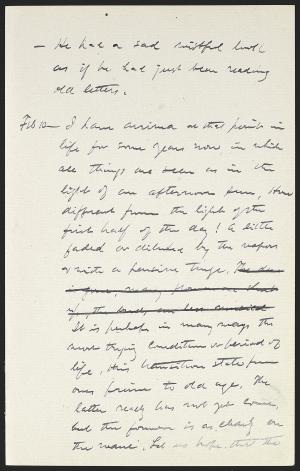 — He had a sad wistful look
as if he had just been reading
old letters.
Feb 10 — I have arrived at that period in
life for some years now in which
all things are seen as in the
light of an afternoon sun, How
different from the light of the
first half of the day! A little
faded or diluted by the vapors
& with a pensive tinge,
It is perhaps in many ways the
most trying condition or period of
life, this transition state from
ones prime to old age. The
latter really has not yet come,
but the former is as clearly on
the wane. Let us hope that the